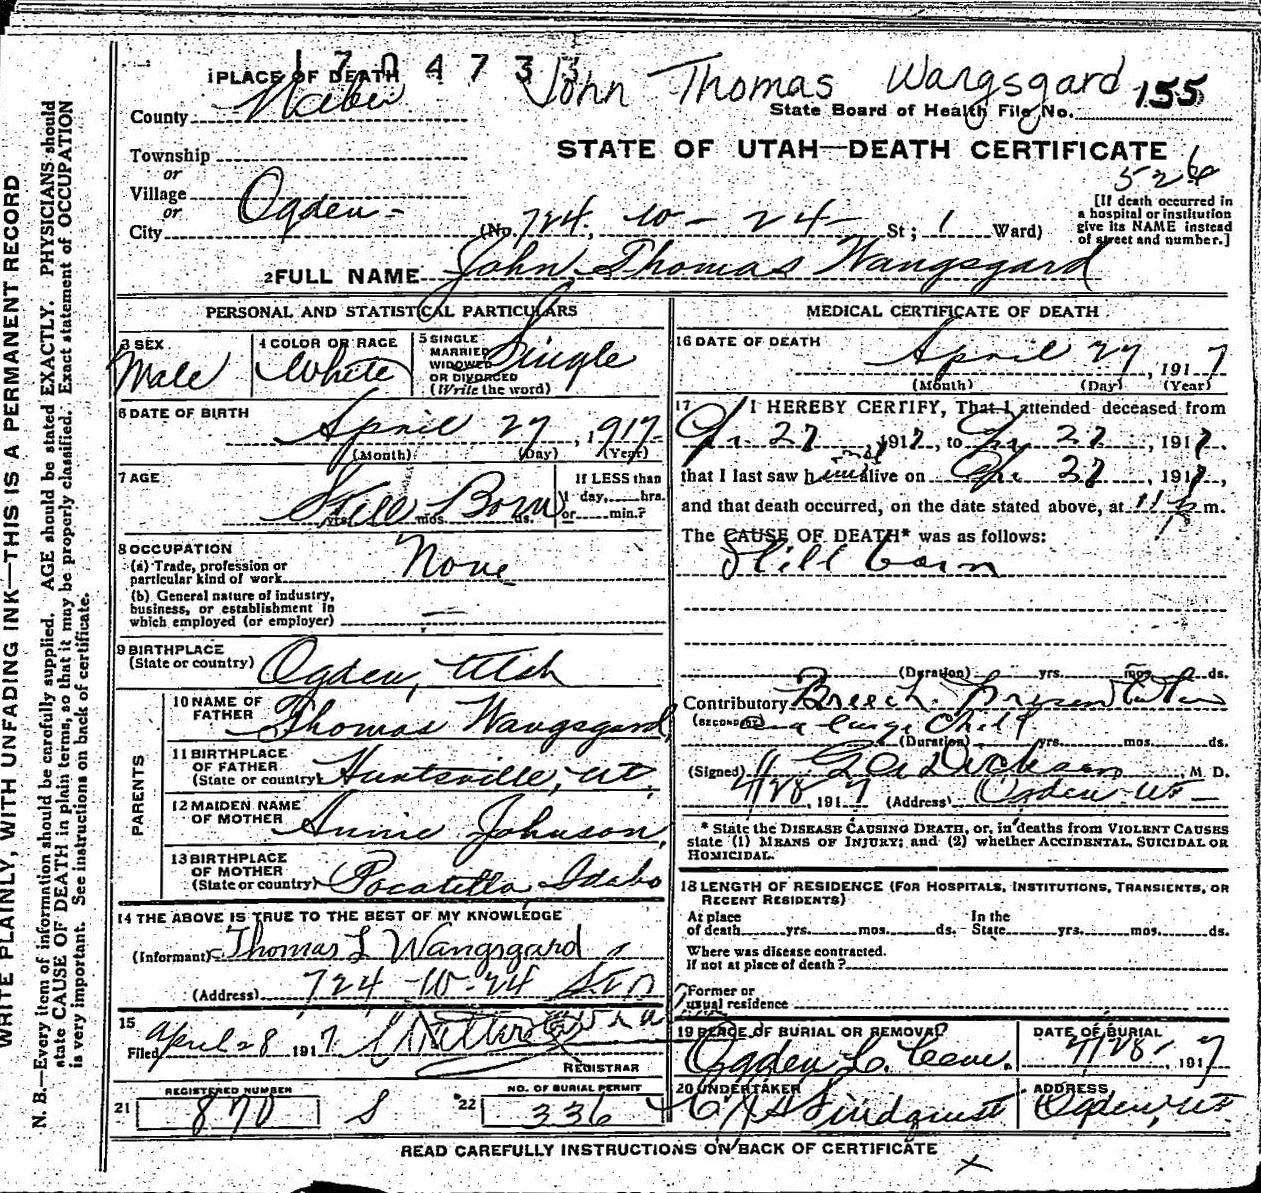 170473 John Thomas Wangsgard 155
1 PLACE OF DEATH
County Weber
State Board of Health File No.
STATE OF UTAH—DEATH CERTIFICATE
526
Township
or
Village
or
City Ogden (No. 724, W - 24 St; 1 Ward)
[If death occurred in a hospital or institution give its NAME instead of street and number.]
2 FULL NAME John Thomas Wangsgard
PERSONAL AND STATISTICAL PARTICULARS
3 SEX Male
4 COLOR OR RACE White
5 SINGLE MARRIED WIDOWED OR DIVORCED (Write the word) Single
6 DATE OF BIRTH April 27, 1917
(Month) (Day) (Year)
7 AGE Still Born
yrs. mos. ds.
If LESS than 1 day, hrs. or min.?
8 OCCUPATION
(a) Trade, profession or particular kind of work None
(b) General nature of industry, business, or establishment in which employed (or employer) —
9 BIRTHPLACE
(State or country) Ogden, Utah
PARENTS
10 NAME OF FATHER Thomas Wangsgard,
11 BIRTHPLACE OF FATHER (State or country) Huntsville, Ut.
12 MAIDEN NAME OF MOTHER Annie Johnson,
13 BIRTHPLACE OF MOTHER (State or country) Pocatello Idaho
14 THE ABOVE IS TRUE TO THE BEST OF MY KNOWLEDGE
(Informant) Thomas L Wangsgard
(Address) 724 - W - 24
15
Filed April 28 1917
REGISTRAR
21 REGISTERED NUMBER 870 S
22 NO. OF BURIAL PERMIT 336
MEDICAL CERTIFICATE OF DEATH
16 DATE OF DEATH
April 27, 1917
(Month) (Day) (Year)
17 I HEREBY CERTIFY, That I attended deceased from
Ap. 27, 1917, to Ap 27, 1917,
that I last saw him alive on Ap. 27, 1917,
and that death occurred, on the date stated above, at 11 m.
The CAUSE OF DEATH* was as follows:
Still born
(Duration) yrs. mos. ds.
Contributory Breech Presentation
(SECONDARY) and large Child
(Duration) yrs. mos. ds.
(Signed) Dickson M D.
4/28, 1917 (Address) Ogden Ut
* State the DISEASE CAUSING DEATH, or, in deaths from VIOLENT CAUSES state (1) MEANS OF INJURY; and (2) whether ACCIDENTAL, SUICIDAL OR HOMICIDAL.
18 LENGTH OF RESIDENCE (FOR HOSPITALS, INSTITUTIONS, TRANSIENTS, OR RECENT RESIDENTS)
At place of death yrs. mos. ds. In the State yrs. mos. ds.
Where was disease contracted.
If not at place of death?
Former or usual residence
19 PLACE OF BURIAL OR REMOVAL Ogden C. Cem.
DATE OF BURIAL 4/28, 1917
20 UNDERTAKER Lindquist
ADDRESS Ogden, Ut
READ CAREFULLY INSTRUCTIONS ON BACK OF CERTIFICATE
x
WRITE PLAINLY, WITH UNFADING INK—THIS IS A PERMANENT RECORD
N. B.—Every item of information should be carefully supplied. AGE should be stated EXACTLY. PHYSICIANS should
state CAUSE OF DEATH in plain terms, so that it may be properly classified. Exact statement of OCCUPATION
is very important. See instructions on back of certificate.